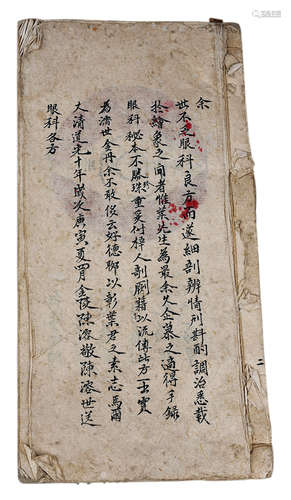 余
世不乏眼科良方而逐細剖辨情列斟酌調治悉載
於繪象之間者惟葉先生為最余久企慕之適得手錄
眼科秘本不勝珍重爰付梓人剞劂藉以流傳此方一出實
為濟世金丹余不敢侈云好德聊以彰葉君之素志焉爾
大清道光十年歲次庚寅夏月金陵陳溶敬陳溶世送
眼科各方